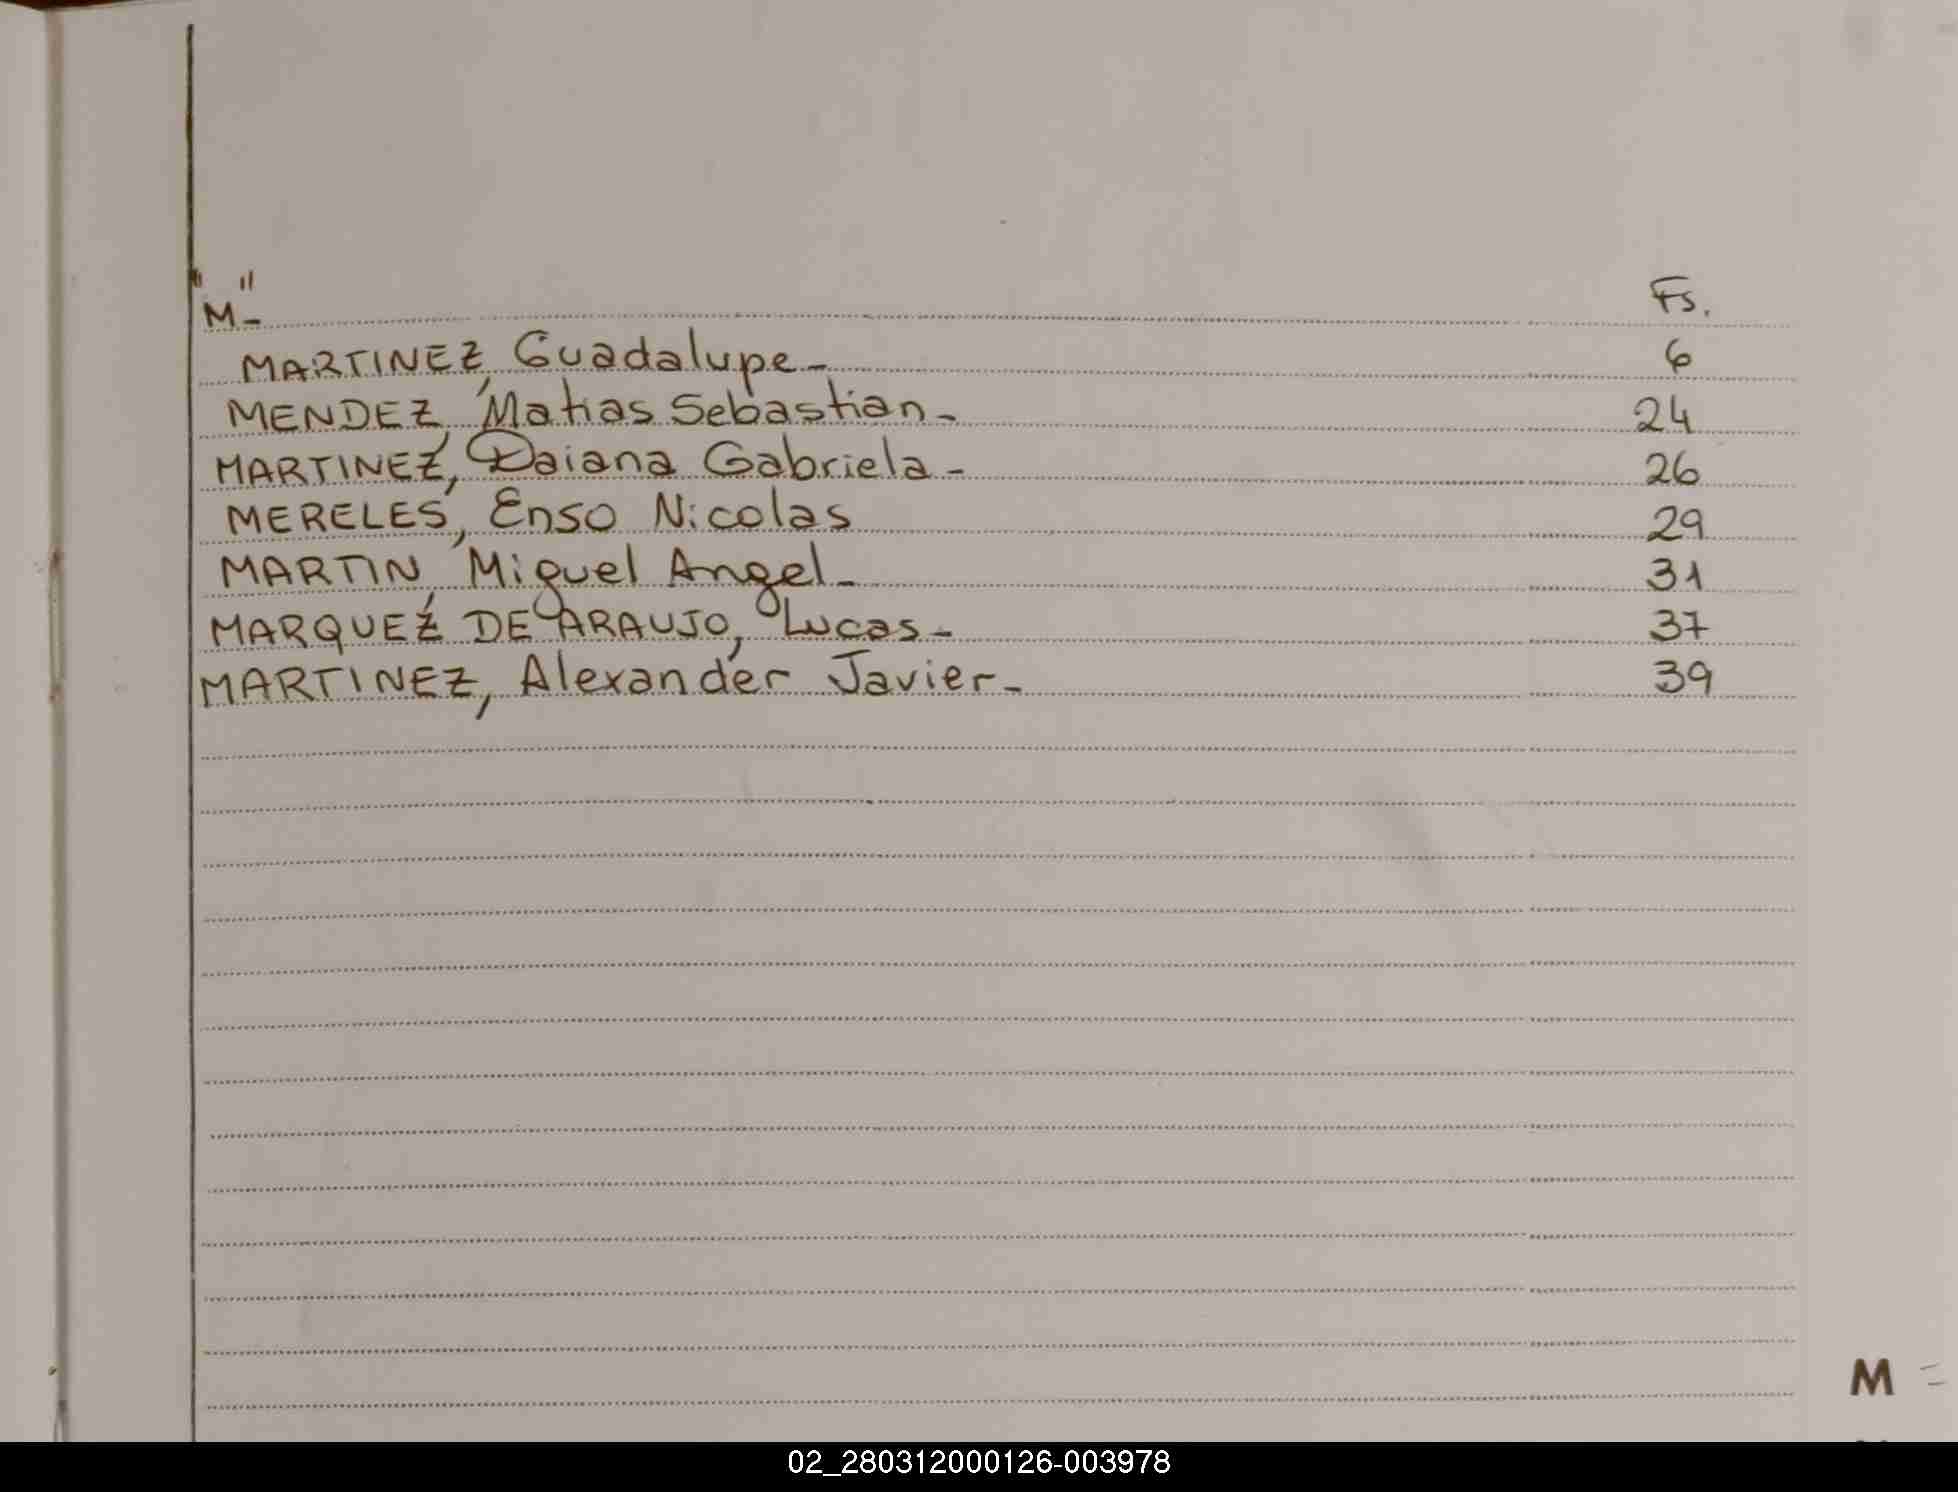 "M"-	Fs.
MARTINEZ, Guadalupe-	6
MENDEZ, Matias Sebastian-	24
MARTINEZ, Daiana Gabriela-	26
MERELES, Enso Nicolas	29
MARTIN, Miguel Angel-	31
MARQUEZ DE ARAUJO, Lucas-	37
MARTINEZ, Alexander Javier-	39
M
02_280312000126-003978